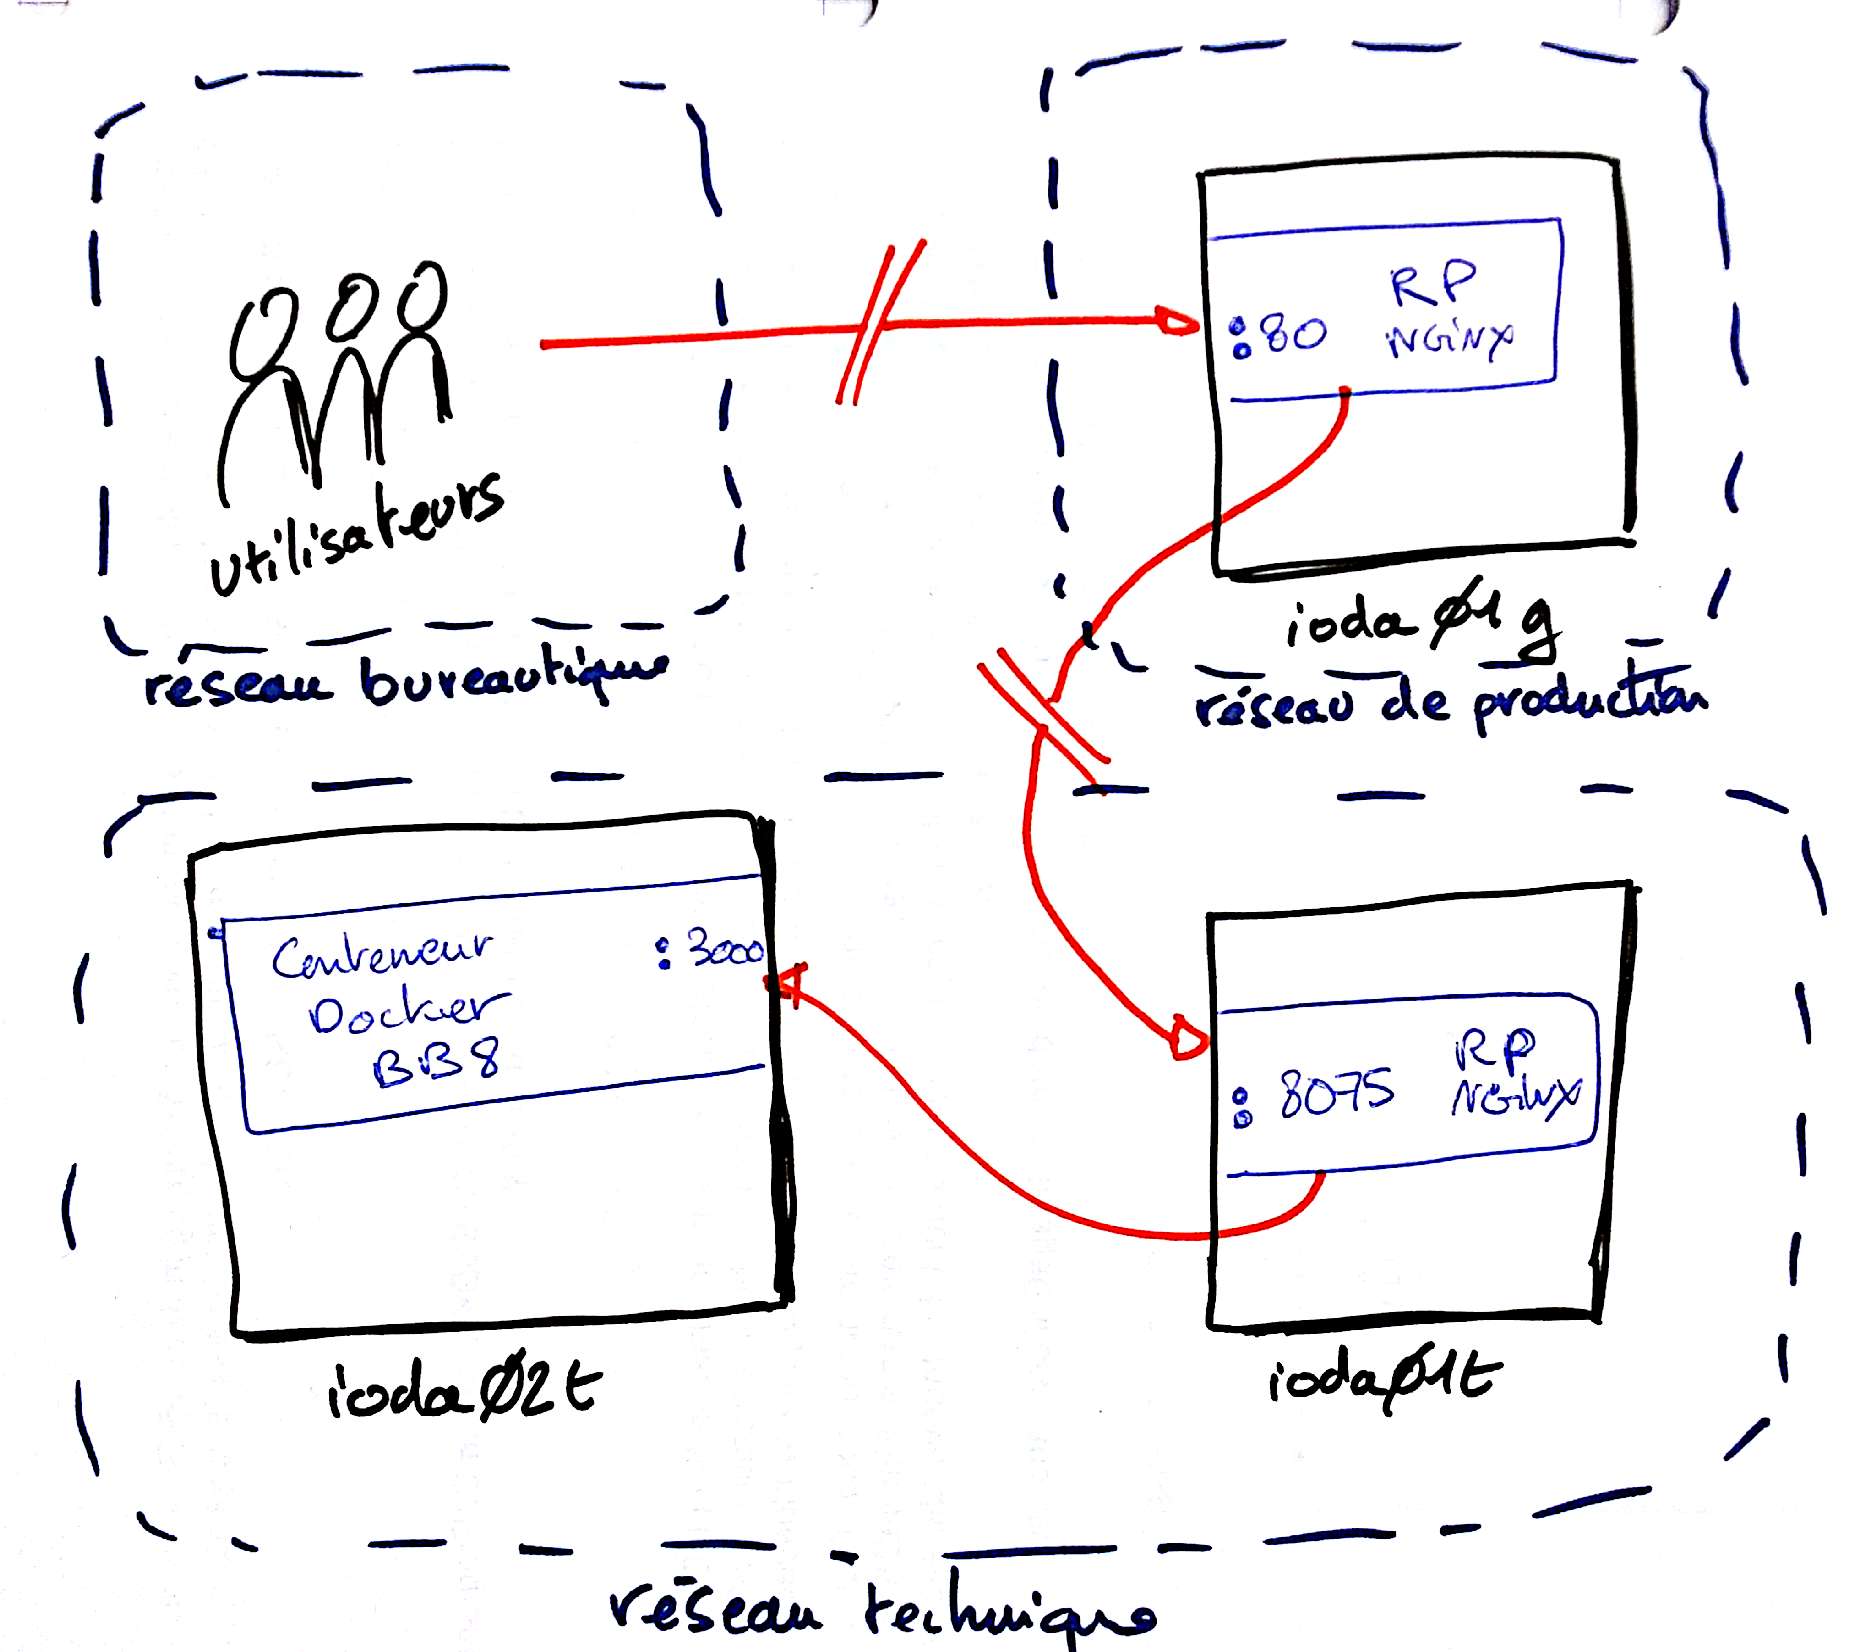 utilisateurs
réseau bureautique
:80
RP
NGiNX
ioda Ø1g
réseau de production
Conteneur
Docker
BB8
:3000
iodaØ2t
:8075
RP
NGiNX
iodaØ1t
réseau technique